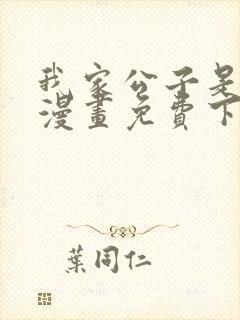 我家公子是
漫畫免費下
葉同仁